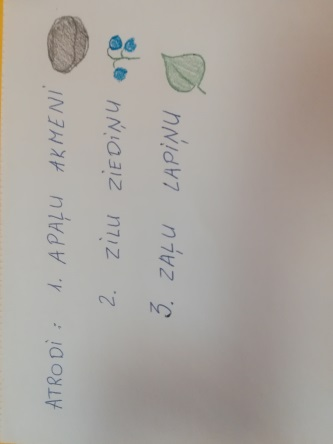 ATRODI: 1. APAĻU AKMENI
2. ZILU ZIEDIŅU
3. ZAĻU LAPIŅU